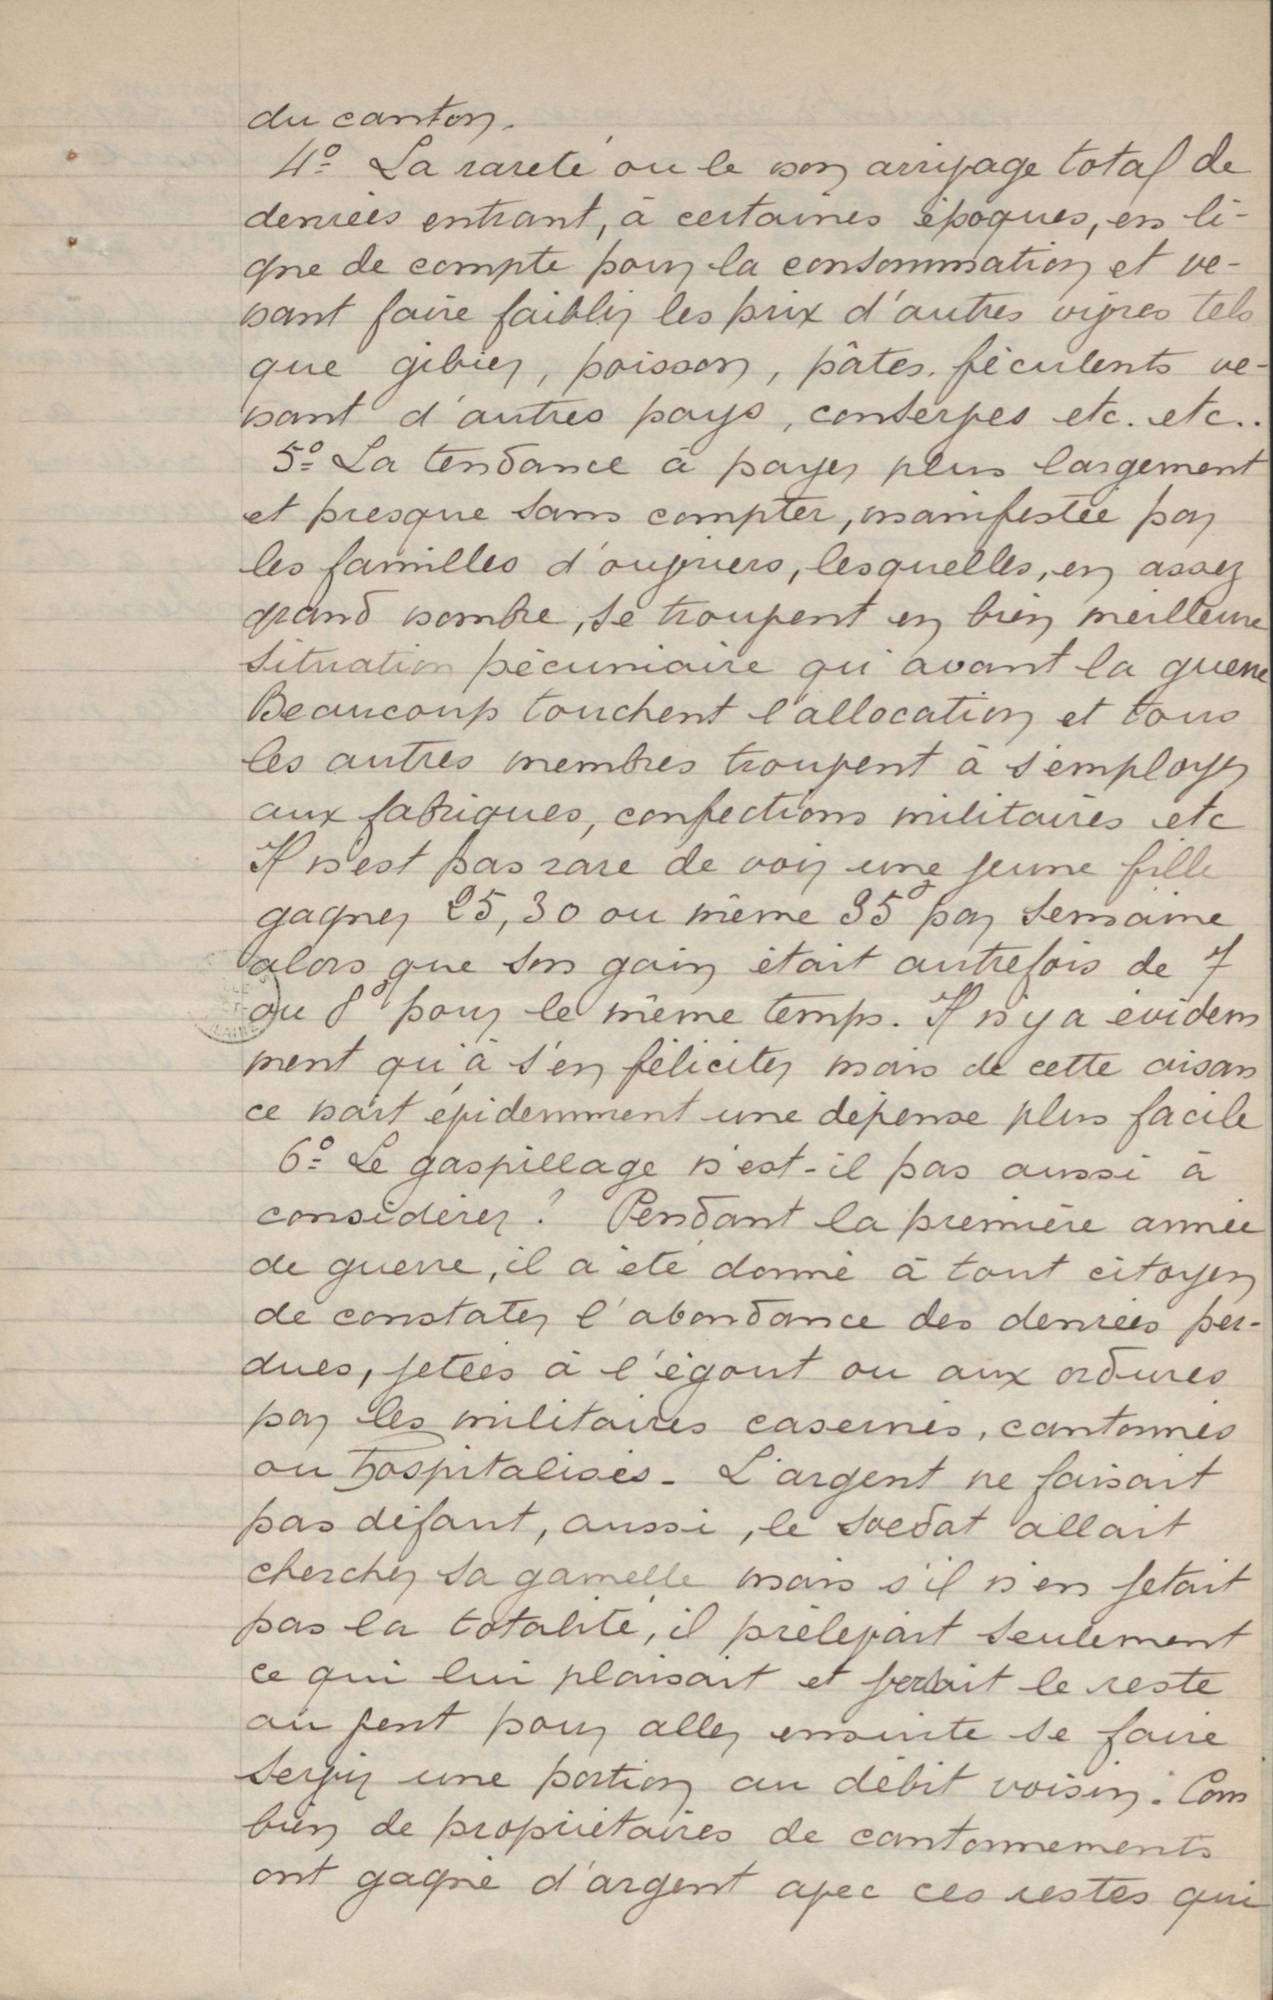 du canton.
4º La rareté ou le non arrivage total de
denrées entrant, à certaines époques, en li-
gne de compte pour la consommation et ve-
nant faire faiblir les prix d'autres vivres tels
que gibier, poisson, pâtes, féculents ve-
nant d'autres pays, conserves etc. etc..
5º La tendance à payer plus largement
et presque sans compter, manifestée par
les familles d'ouvriers, lesquelles, en assez
grand nombre, se trouvent en bien meilleure
situation pécuniaire qu'avant la guerre
Beaucoup touchent l'allocation et tous
les autres membres trouvent à s'employer
aux fabriques, confections militaires etc
Il n'est pas rare de voir une jeune fille
gagner 25, 30 ou même 35f par semaine
alors que son gain était autrefois de 7
ou 8f pour le même temps. Il n'y a évidem
ment qu'à s'en féliciter mais de cette aisan
ce naît évidemment une dépense plus facile
6º Le gaspillage n'est-il pas aussi à
considérer? Pendant la première année
de guerre, il a été donné à tout citoyen
de constater l'abondance des denrées per-
dues, jetées à l'égout ou aux ordures
par les militaires casernés, cantonnés
ou hospitalisés. L'argent ne faisait
pas défaut, aussi, le soldat allait
chercher sa gamelle mais s'il n'en jetait
pas la totalité, il prélevait seulement
ce qui lui plaisait et jetait le reste
au vent pour aller ensuite se faire
servir une portion au débit voisin. Com
bien de propriétaires de cantonnements
ont gagné d'argent avec ces restes qui